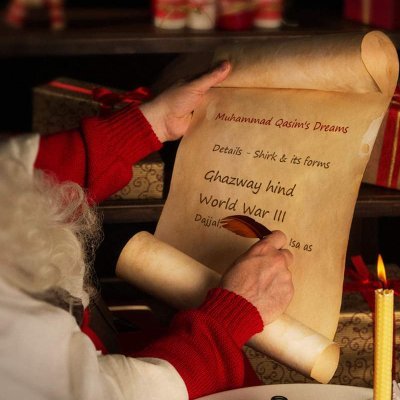 Muhammad Qasim's Dreams
Details - Shirk & its forms
Ghazway hind
World War III
Dajjal, Isa as